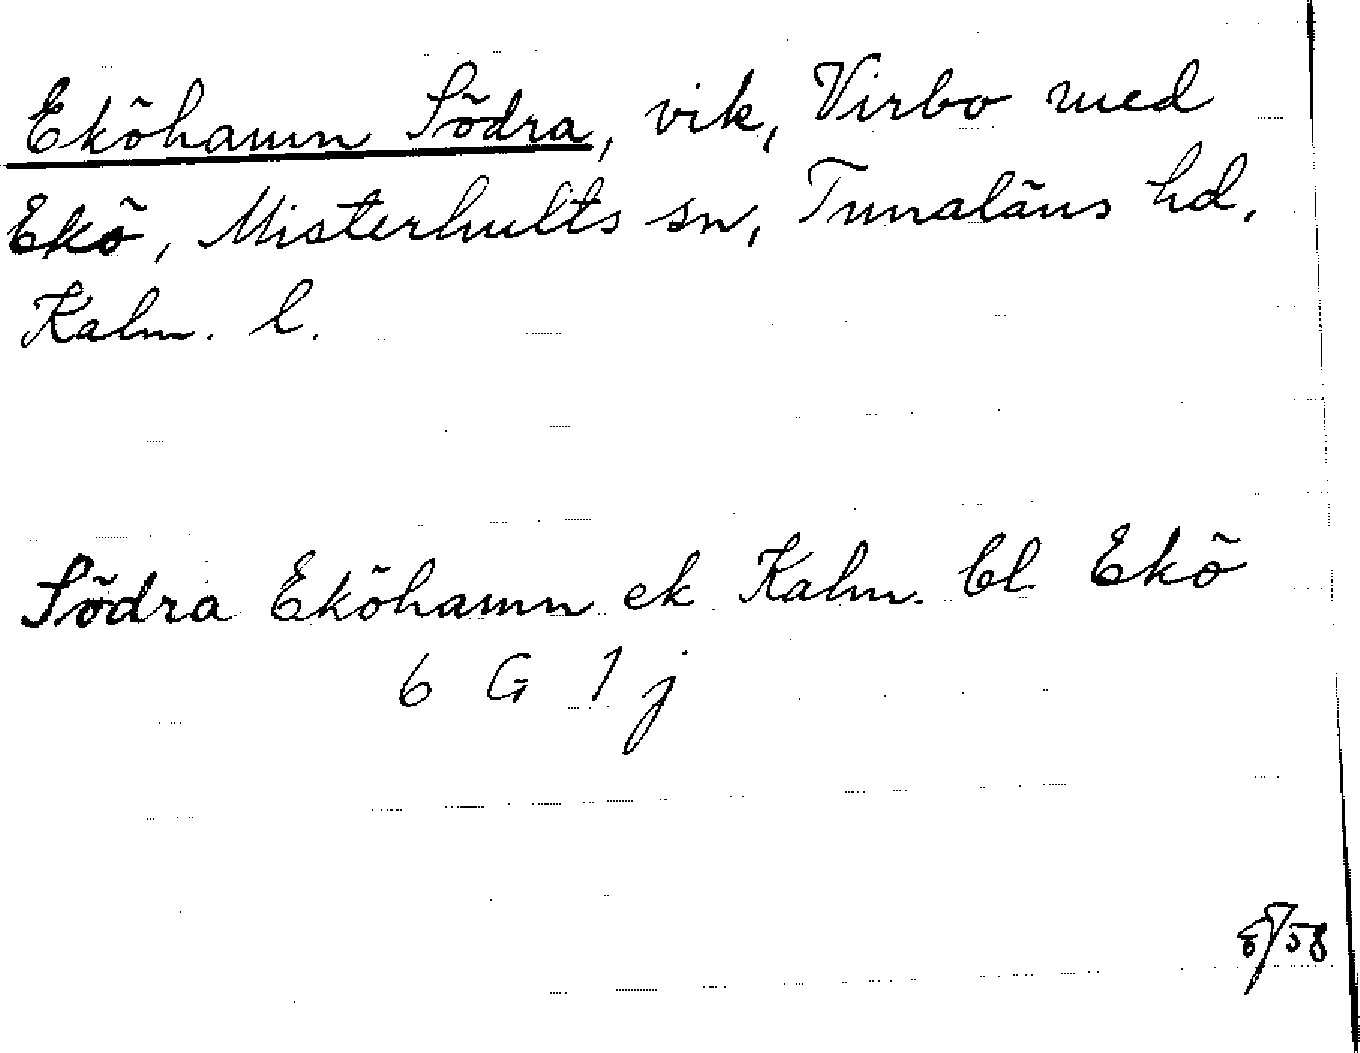 Eköhamn Södra, vik, Virbo med
Ekö, Misterhults sn, Tunaläns hd,
Kalm. l.
Södra Eköhamn ek Kalm. bl Ekö
6 G 1 j